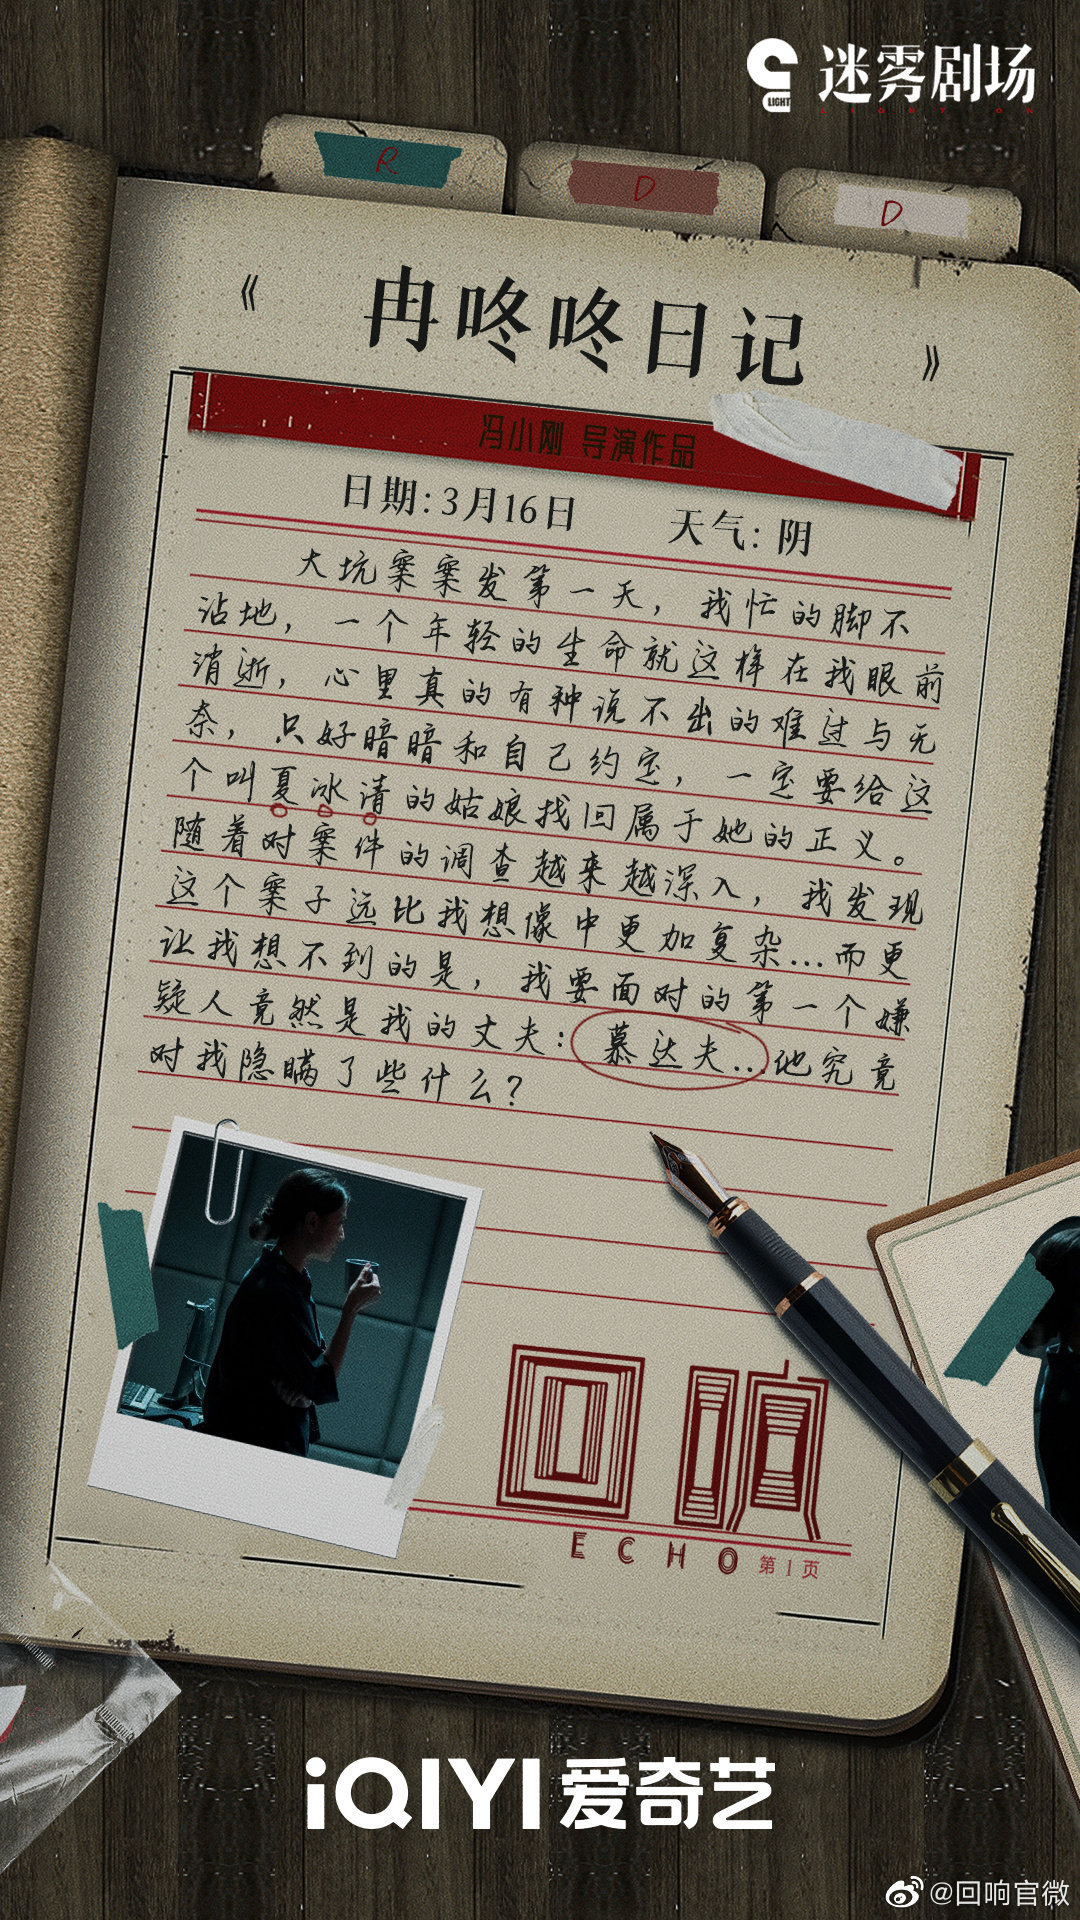 LIGHT
迷雾剧场
LIGHT ON
R
D
D
《冉咚咚日记》
冯小刚 导演作品
日期:3月16日 天气:阴
大坑案案发第一天，我忙的脚不
沾地，一个年轻的生命就这样在我眼前
消逝，心里真的有种说不出的难过与无
奈，只好暗暗和自己约定，一定要给这
个叫夏冰清的姑娘找回属于她的正义。
随着对案件的调查越来越深入，我发现
这个案子远比我想像中更加复杂...而更
让我想不到的是，我要面对的第一个嫌
疑人竟然是我的丈夫：慕达夫...他究竟
对我隐瞒了些什么？
回响
ECHO
第1页
iQIYI 爱奇艺
@回响官微